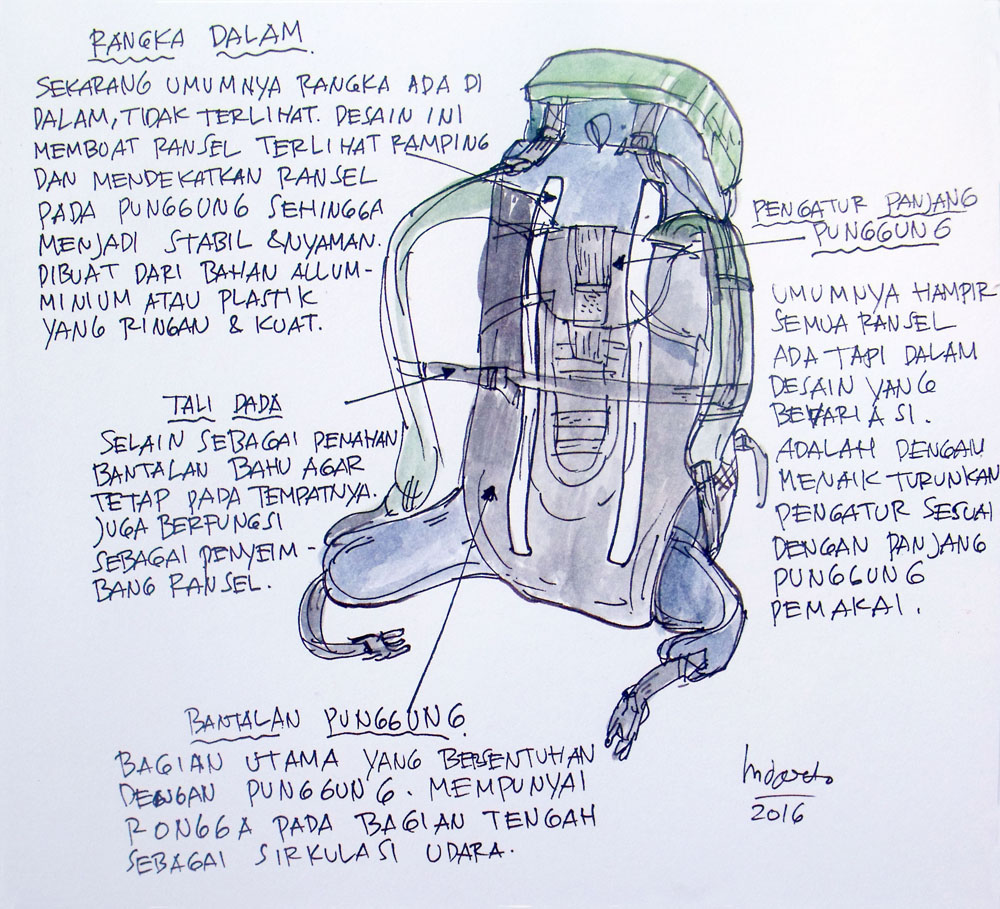 RANGKA DALAM.
SEKARANG UMUMNYA RANGKA ADA DI
DALAM, TIDAK TERLIHAT. DESAIN INI
MEMBUAT RANSEL TERLIHAT RAMPING
DAN MENDEKATKAN RANSEL
PADA PUNGGUNG SEHINGGA
MENJADI STABIL & NYAMAN.
DIBUAT DARI BAHAN ALLUM-
MINIUM ATAU PLASTIK
YANG RINGAN & KUAT.
PENGATUR PANJANG
PUNGGUNG
UMUMNYA HAMPIR
SEMUA RANSEL
ADA TAPI DALAM
DESAIN YANG
BEVARIASI.
ADALAH DENGAN
MENAIK TURUNKAN
PENGATUR SESUAI
DENGAN PANJANG
PUNGGUNG
PEMAKAI.
TALI DADA
SELAIN SEBAGAI PENAHAN
BANTALAN BAHU AGAR
TETAP PADA TEMPATNYA.
JUGA BERFUNGSI
SEBAGAI PENYEIM-
BANG RANSEL.
BANTALAN PUNGGUNG.
BAGIAN UTAMA YANG BERSENTUHAN
DENGAN PUNGGUNG. MEMPUNYAI
RONGGA PADA BAGIAN TENGAH
SEBAGAI SIRKULASI UDARA.
2016